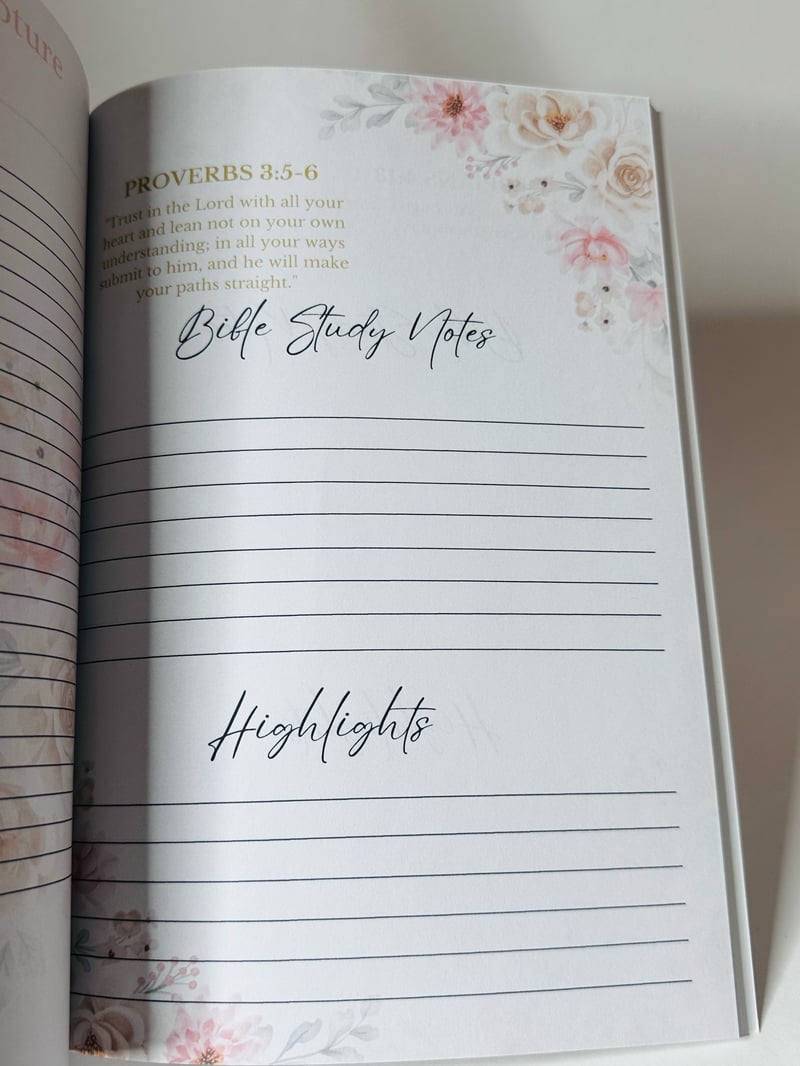 PROVERBS 3:5-6
"Trust in the Lord with all your
heart and lean not on your own
understanding; in all your ways
submit to him, and he will make
your paths straight."
Bible Study Notes
Highlights